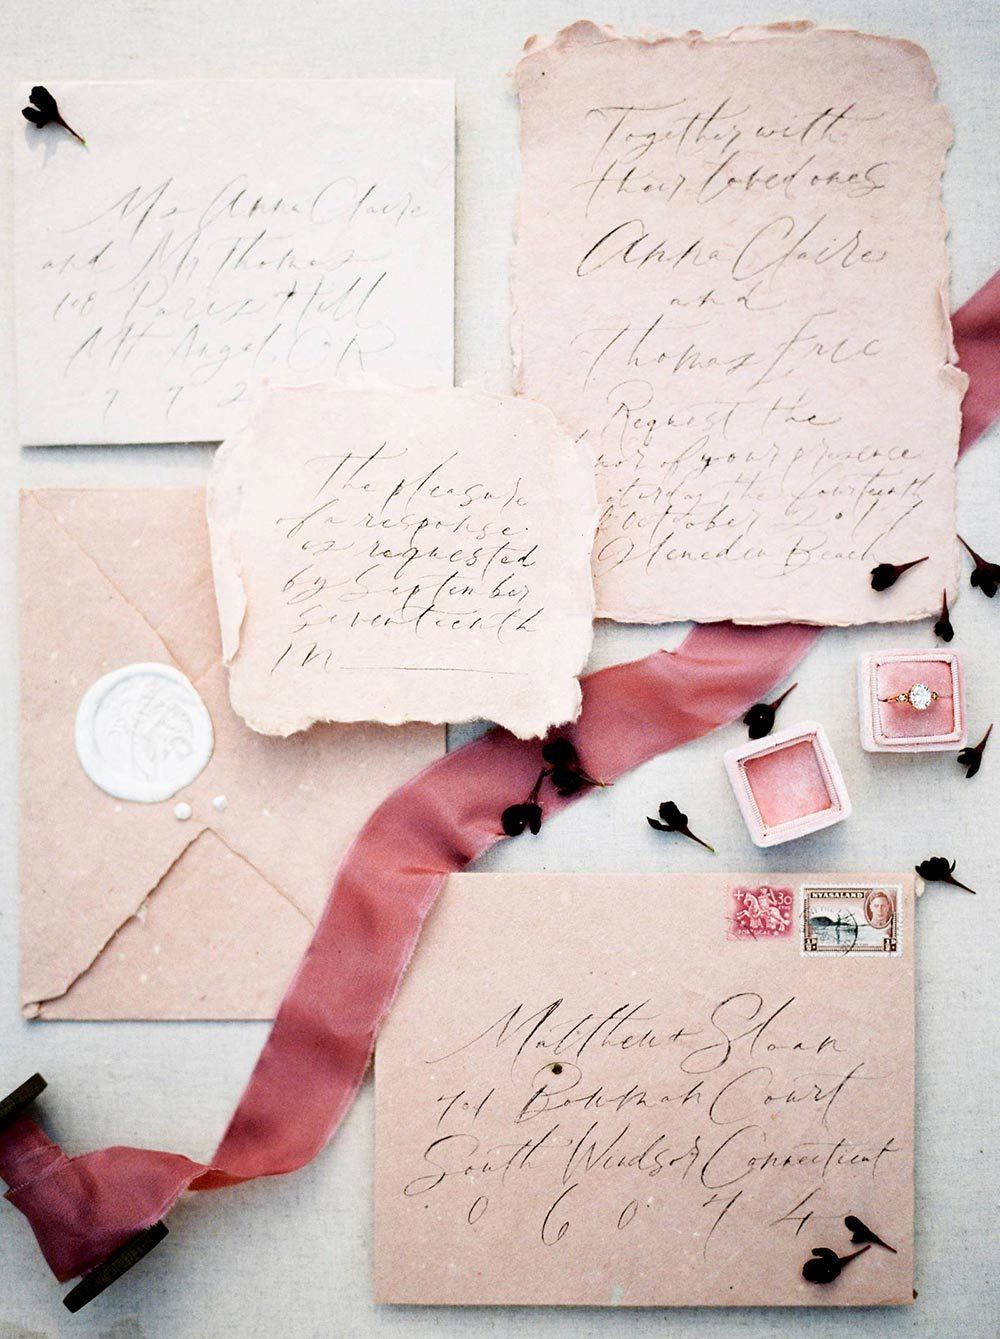 Ms Anna Claire
and Mr Thomas
108 Paris Hill
Mt Angel, OR
9 7 2
Together with
their loved ones
Anna Claire
and
Thomas
Request the
of your presence
the fourteenth
October 2017
Gleneden Beach
The pleasure
of a response
is requested
by September
seventeenth
M
+30
CTVS
PORTUGAL
NYASALAND
½D
Matthew Sloan
Bowman Court
South Windsor Connecticut
0 6 0 7 4